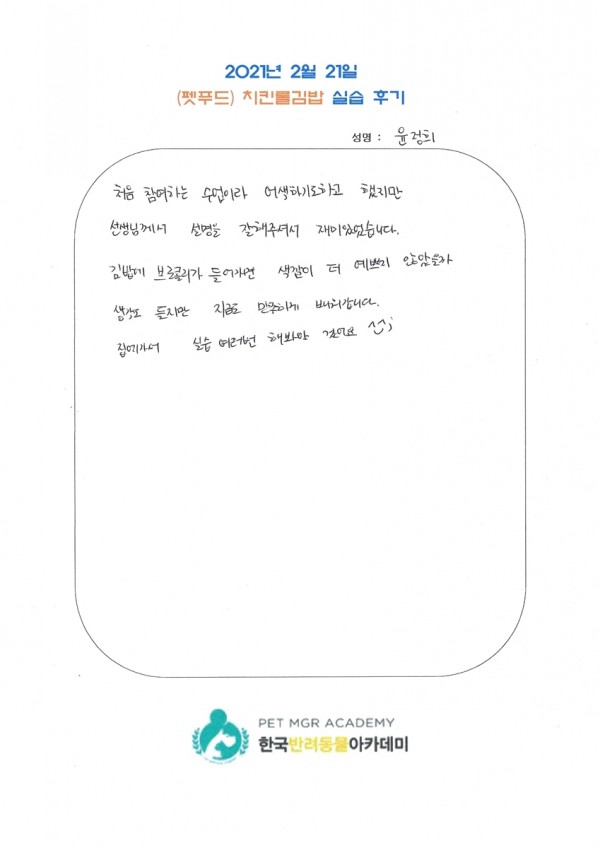 2021년 2월 21일
(펫푸드) 치킨롤김밥 실습 후기
성명 : 윤정희
처음 참여하는 수업이라 어색하기도하고 했지만
선생님께서 설명을 잘해주셔서 재미있었습니다.
김밥에 브로컬리가 들어가면 색감이 더 예쁘지 않았을까
생각도 들지만 지금도 만족하게 배워갑니다.
집에가서 실습 여러번 해봐야 겠어요 ^^;
PET MGR ACADEMY
한국반려동물아카데미